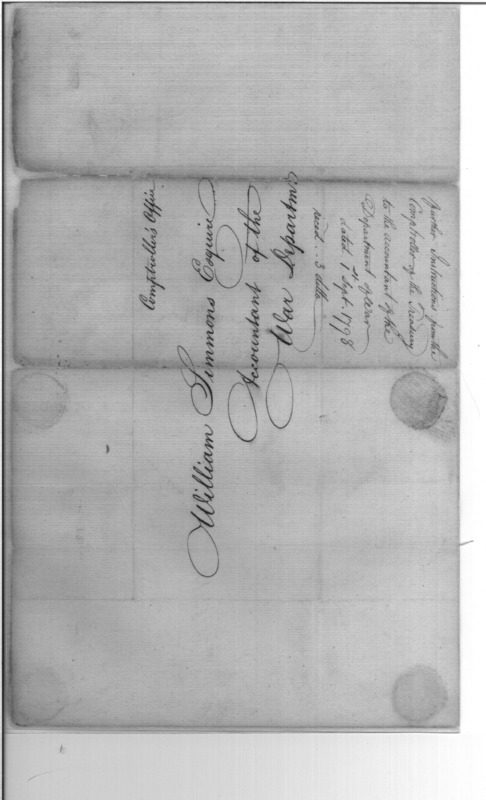 Comptroller's Office
William Simmons Esquire
Accountant of the
War Departmt.
Further Instructions from the
Comptroller of the Treasury
to the accountant of the
Department of War
dated 1st Sept. 1798
recd. 3 ditto